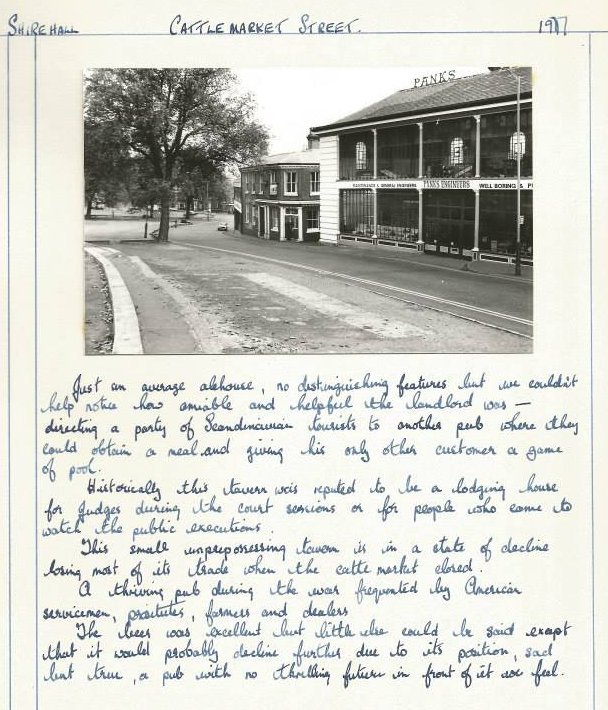 SHIREHALL CATTLEMARKET STREET. 1977
PANKS
ENGINEERS PANKS ENGINEERS WELL BORING & P
Just an average alehouse, no distinguishing features but we couldn't
help notice how amiable and helpful the landlord was —
directing a party of Scandinavian tourists to another pub where they
could obtain a meal and giving his only other customer a game
of pool.
Historically this tavern was reputed to be a lodging house
for judges during the court sessions or for people who came to
watch the public executions.
This small unprepossessing tavern is in a state of decline
losing most of its trade when the cattle market closed.
A thriving pub during the war frequented by American
servicemen, prostitutes, farmers and dealers
The beer was excellent but little else could be said except
that it would probably decline further due to its position, sad
but true, a pub with no thrilling future in front of it we feel.